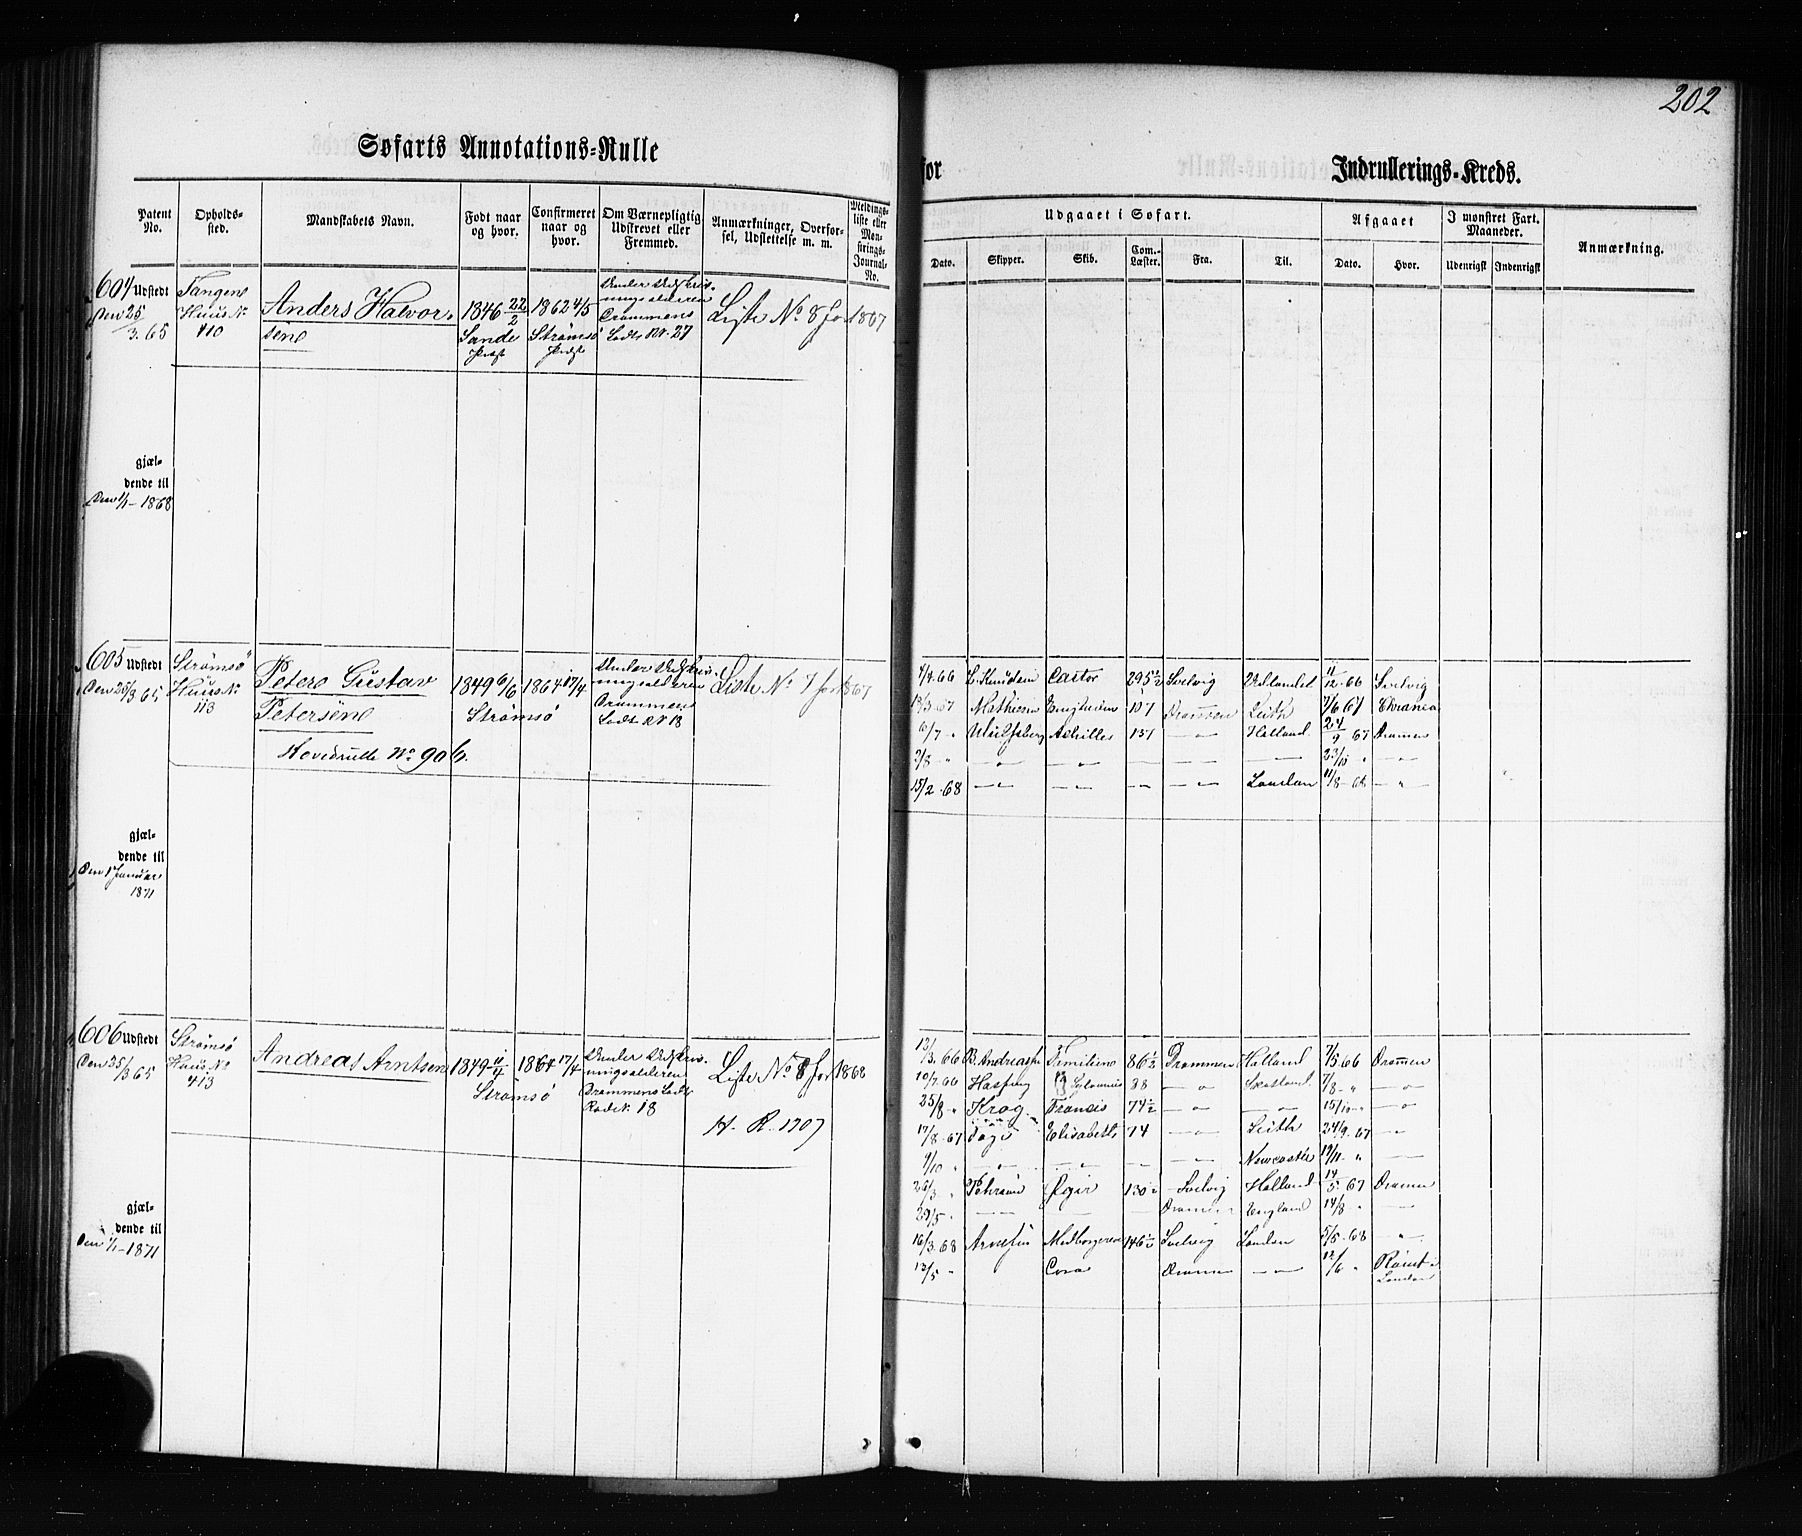 202
Søfarts Annotations-Rulle
for Indrullerings-Kreds.
Patent No.
Opholds-sted.
Mandskabets Navn.
Født naar og hvor.
Confirmeret naar og hvor.
Om Værnepligtig Udskrevet eller Fremmed.
Anmærkninger, Overførsel, Udslettelse m. m.
Meldings-liste eller Mønstrings-Journal-No.
Udgaaet i Søfart.
Afgaaet
I mønstret Fart. Maaneder.
Anmærkning.
Dato.
Skipper.
Skib.
Com.Læster.
Fra.
Til.
Dato.
Hvor.
Udenrigsk
Indenrigsk
604 Udstedt Den 25/3. 65
Tangens Huus No 110
Anders Halvorsene
1846 22/2 Sande
1862 4/5 Strømsø
Under Udskrivningsalderen Drammens Lodts No. 27
Liste No 8 for 1867
gjæl-
dende til
Den 1/1 - 1868
605 Udstedt Den 25/3 65
Strømsø Huus No 113
Peter Gustav
Petersen
Hovedrulle No 906.
1849 6/6 Strømsø
1864 17/4
Under Udskrivningsalderen Drammens Lodts No 18
Liste No 7 for 1867
4/4. 66 L. Knudsen Castor 295½ Svelvig Udlandet 11/12-66 Svelvig
13/3. 67 Mathiesen 107 Drammen Leith 7/6 67
6/7 " Achilles 151 — " — Holland 24/9 67 Dramen
2/8 " — " — — " — — — " — 23/10 " "
15/2-68 — " — — " — — " — — " — London 11/8-68 — " —
gjæl-
dende til
Den 1 Januar
1871
606 Udstedt Den 25/3 65
Strømsø Huus No 413
Andreas Arntsen
1849 4/4 Strømsø
1864 17/4
Under Udskrivningsalderen Drammens Lodts Rode No. 18
Liste No 8 for 1868
H. R. 1707
13/3. 66 B. Andreassen Familien 86½ Drammen Holland 7/5 66 Dramen
10/7 66 88 — " — Skotland 7/8 - " — " —
25/8 - " Krog Francis 74½ — " — — " — 15/10 - " — " —
17/8-67 Elisabeth 74 — " — Leith 24/9. 67 — " —
9/10 " — " — — " — — — " — Newcastle 19/11 - " — " —
25/3 " Ægir 130½ Svelvig Holland 14/5 67 Dramen
29/5 " — — — — Dramen England 14/8 " — " —
16/3. 68 Arnesen Medborgeren 146½ Svelvig London 5/5-68 — " —
13/5 - Cora Dramen — " — 12/6 " London
gjæl-
dende til
Den 1/1-1871